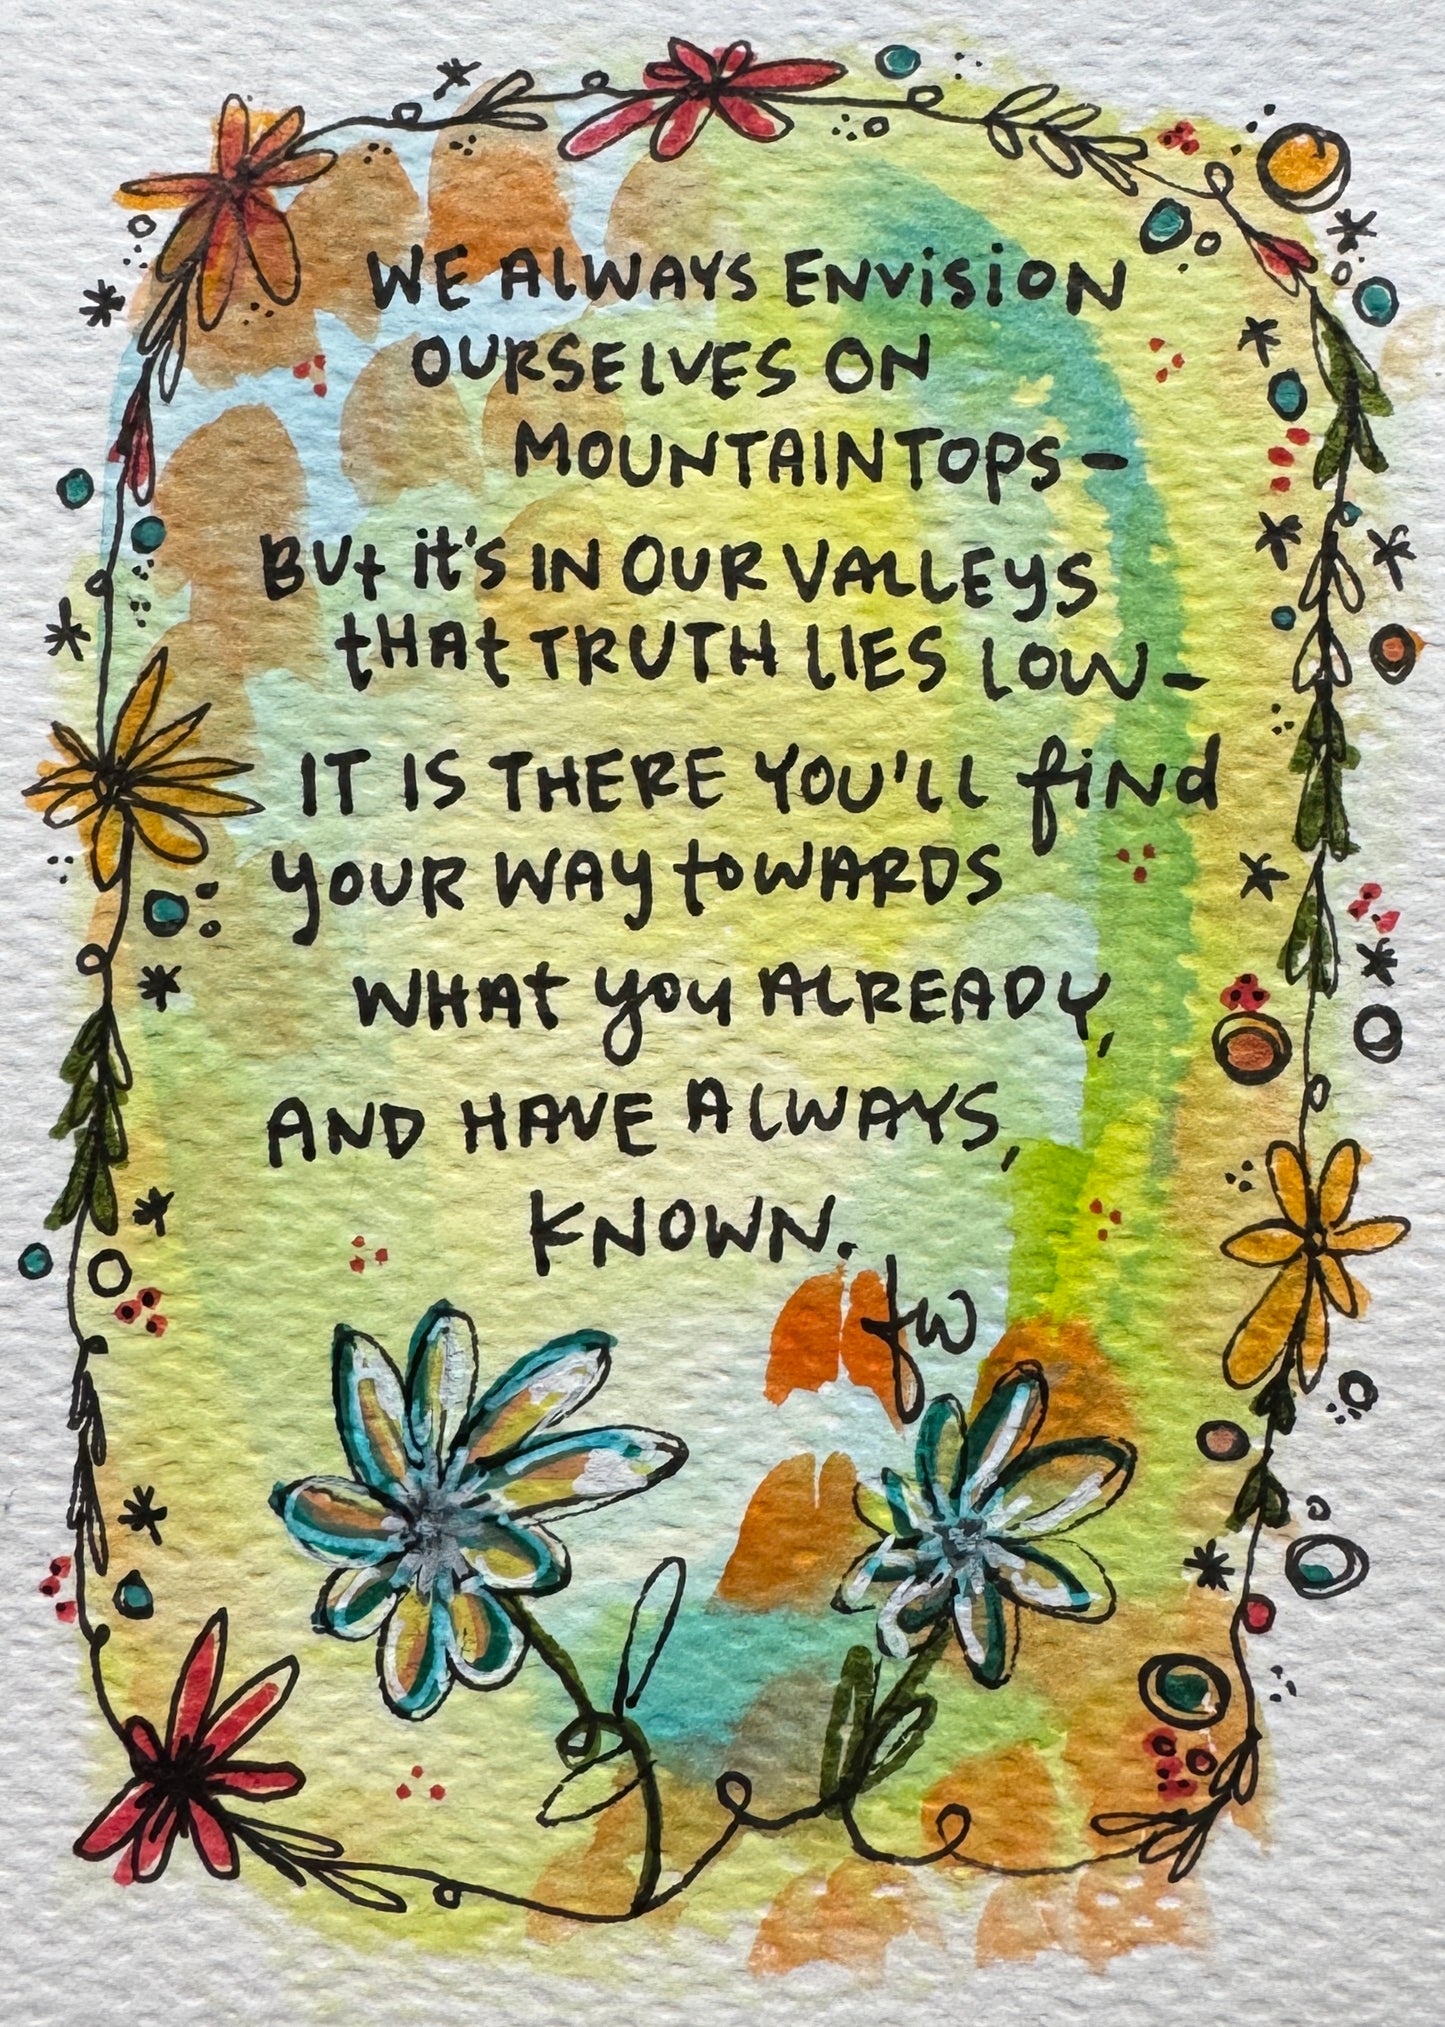 WE ALWAYS ENVISION
OURSELVES ON
MOUNTAINTOPS -
BUt it's IN OUR VALLEYS
tHAt TRUTH LIES LOW -
IT IS THERE YOU'LL find
YOUR WAY toWARDS
WHAt you ALREADY,
AND HAVE ALWAYS,
KNOWN.
fw